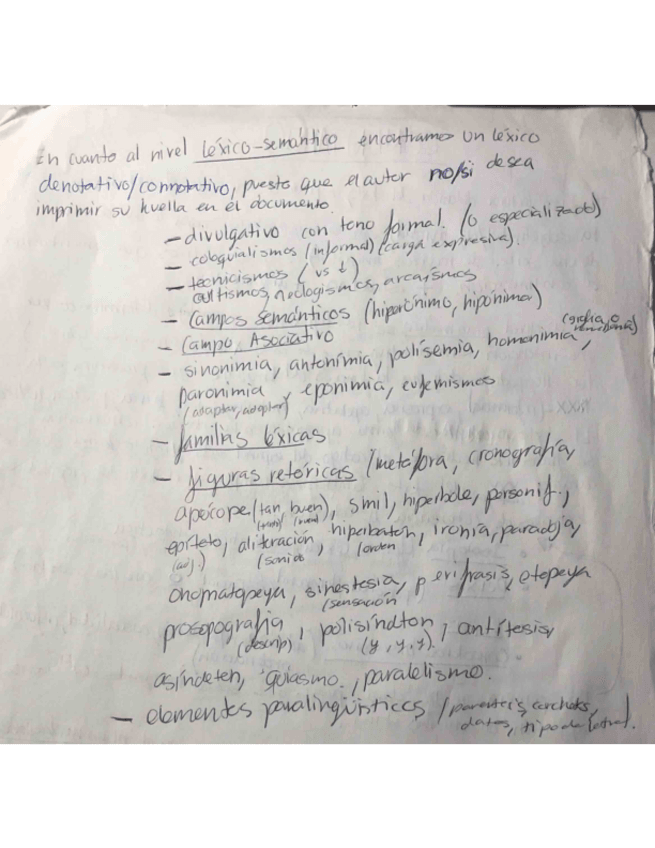 En cuanto al nivel léxico-semántico encontramos un léxico
denotativo/connotativo, puesto que el autor no/si desea
imprimir su huella en el documento.
– divulgativo con tono formal (o especializado)
– coloquialismos (informal) (carga expresiva).
– tecnicismos ( vs ↓ )
cultismos, neologismos, arcaísmos
– Campos semánticos (hiperónimo, hipónimo)
– Campo Asociativo
– sinonimia, antonimia, polisemia, homonimia, (grafía o
paronimia, eponimia, eufemismos
(adaptar, adoptar)
– familias léxicas
– figuras retóricas (metáfora, cronografía,
apócope (tan, buen), símil, hipérbole, personif.,
epíteto, aliteración, hipérbaton, ironía, paradoja,
(adj.) (sonido (orden
onomatopeya, sinestesia, perífrasis, etopeya
(sensación
prosopografía, polisíndton, antítesis,
(descrip) (y, y, y)
asíndeton, quiasmo, paralelismo.
– elementos paralingüísticos (paréntesis, corchetes,
datos, tipo de letra).